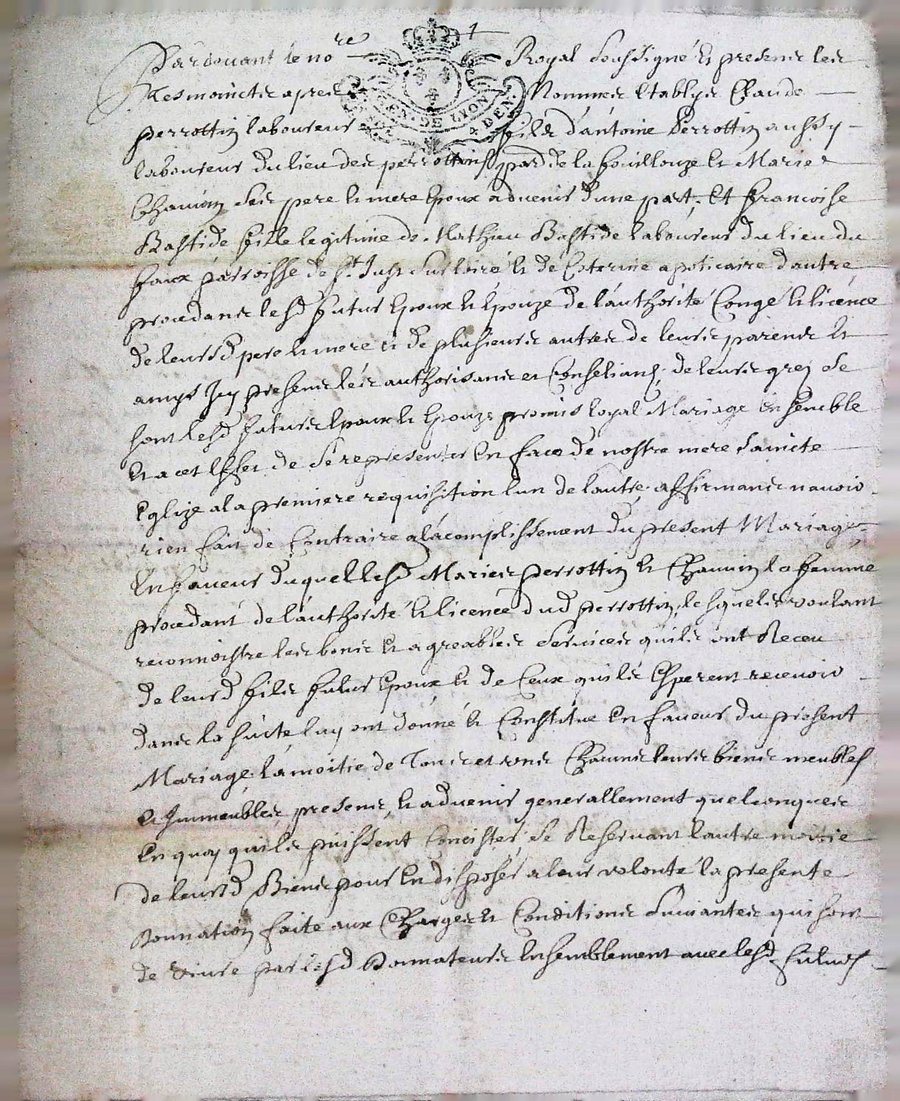 Pardevant le no.re Royal soussigné et presens les
tesmoings apres nommes establys Claude
GEN. DE LYON 4 DEN.
perrottin laboureur fils d'antoine perrottin aussy
laboureur du lieu des perrottins parr de la fouillouze et Marie
Chauvin ses pere et mere Epoux advenir d'une part, Et francoise
Bastide fille legitime de Mathieu Bastide laboureur du lieu du
faux parroisse de St Just sur loire et de Caterine apoticaire d'autre
procedans lesd futur Epoux et Epouze de l'authorité Congé et licence
de leursd pere et mere et de plusieurs autres de leurs parens et
amys Icy presens les authorisans et Conseliant, de leurs grez se
sont lesd futurs Epoux et Epouze promis loyal Mariage ensemble
Et a cet Effet de se representer En face de nostre mere saincte
Eglize a la premiere requisition l'un de l'autre affirmans n'avoir
rien fait de Contraire a l'acomplissement du present Mariage
En faveur duquel lesd Maries perrottin et Chauvin la femme
procedant de l'authorité et licence dud perrottin, lesquels voulant
reconnoistre les bons et agreables services quils ont Receu
de leurd fils futur Epoux et de Ceux quils Esperent recevoir
dans la suite luy ont donné et Constitué En faveur du present
Mariage la moitie de Tous et uns Chacuns leurs biens meubles
et Immeubles, presens et advenir generallement quelconques
En quoy quils puissent Concister se Reservant l'autre moitie
de leursd Biens pour En disposer a leur volonté la presente
Donnation faite aux Charges et Conditions suivantes qui sont
de vivre par lesd Donnateurs Ensemblement avec lesd futurs